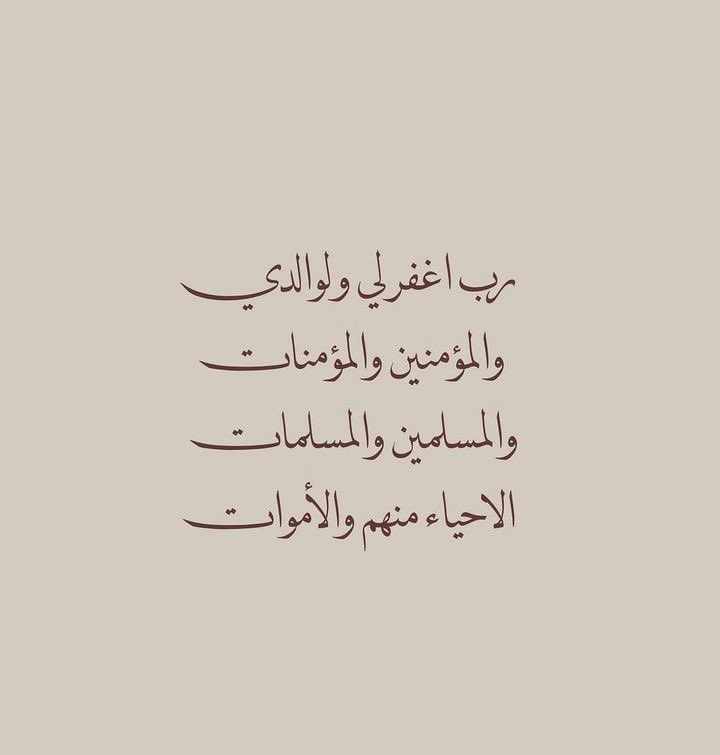 رب اغفرلي ولوالدي
والمؤمنين والمؤمنات
والمسلمين والمسلمات
الاحياء منهم والأموات